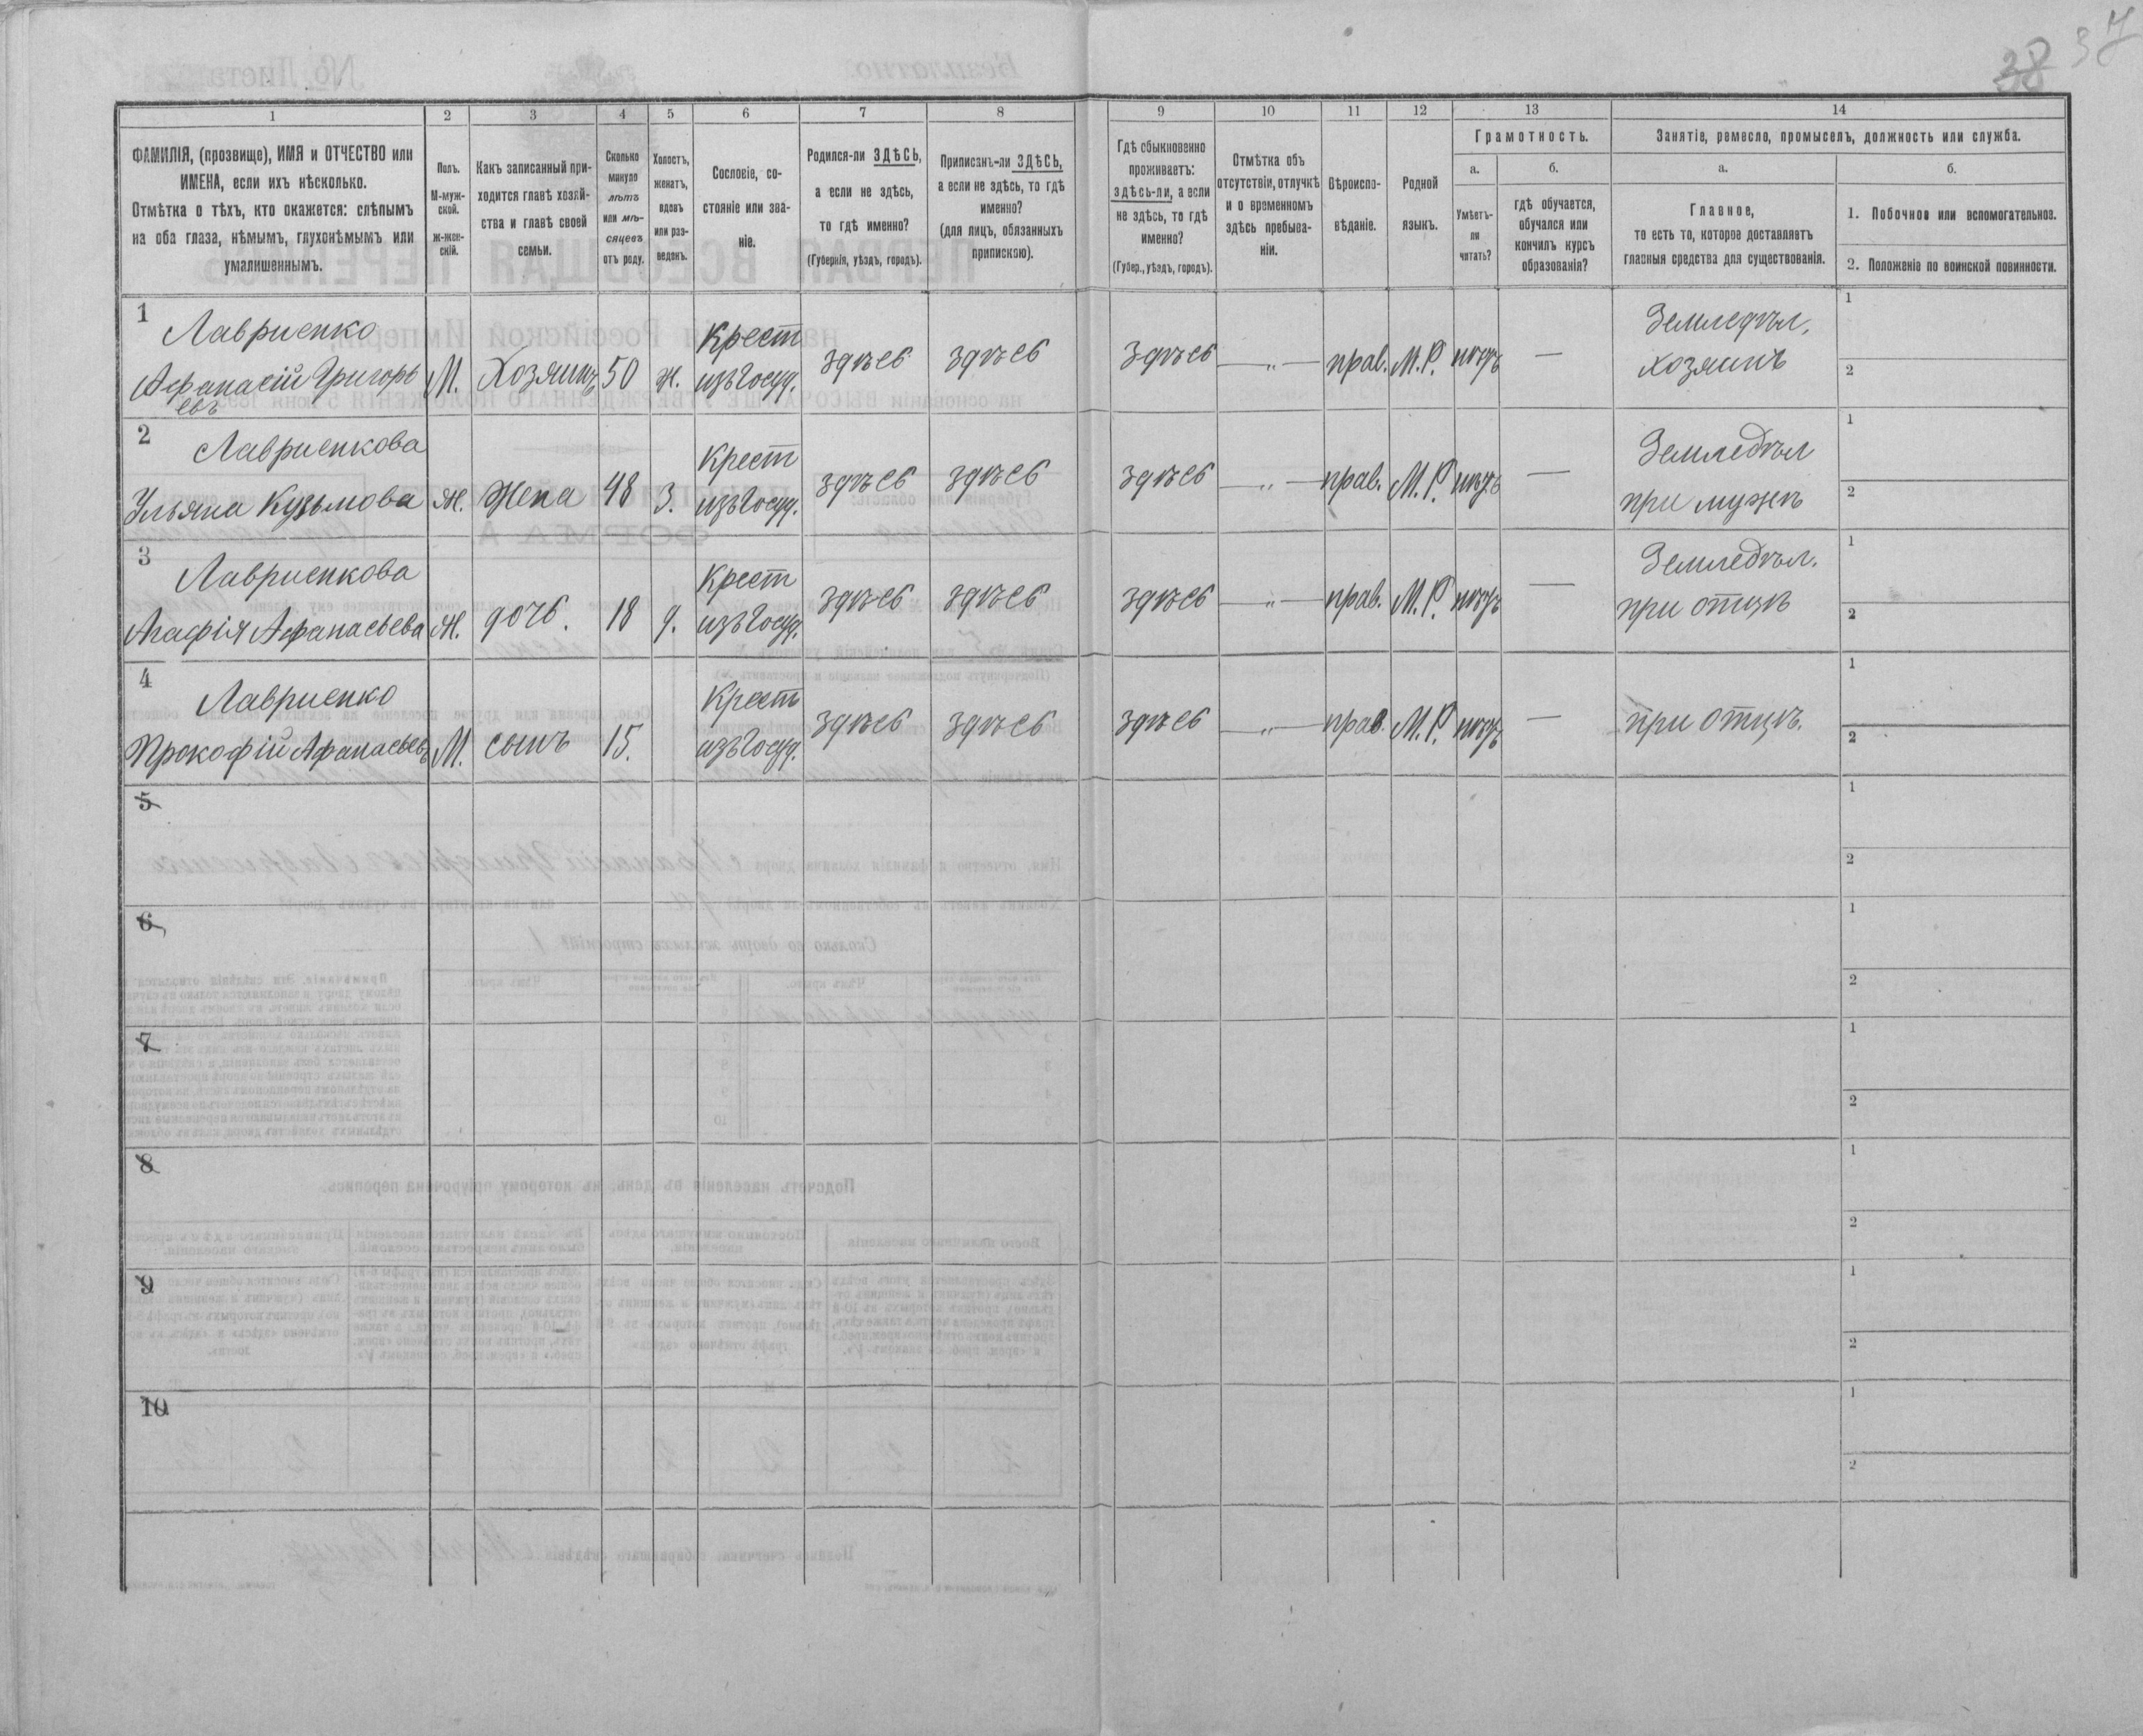 38 37
1
2
3
4
5
6
7
8
9
10
11
12
13
14
ФАМИЛІЯ, (прозвище), ИМЯ и ОТЧЕСТВО или
ИМЕНА, если ихъ нѣсколько.
Отмѣтка о тѣхъ, кто окажется: слѣпымъ
на оба глаза, нѣмымъ, глухонѣмымъ или
умалишеннымъ.
Полъ.
М-муж-
ской.
Ж-жен-
скій.
Какъ записанный при-
ходится главѣ хозяй-
ства и главѣ своей
семьи.
Сколько
минуло
лѣтъ
или мѣ-
сяцевъ
отъ роду.
Холостъ,
женатъ,
вдовъ
или раз-
веденъ.
Сословіе, со-
стояніе или зва-
ніе.
Родился-ли ЗДѢСЬ,
а если не здѣсь,
то гдѣ именно?
(Губернія, уѣздъ, городъ).
Приписанъ-ли ЗДѢСЬ,
а если не здѣсь, то гдѣ
именно?
(для лицъ, обязанныхъ
припискою).
Гдѣ обыкновенно
проживаетъ:
здѣсь-ли, а если
не здѣсь, то гдѣ
именно?
(Губер., уѣздъ, городъ).
Отмѣтка объ
отсутствіи, отлучкѣ
и о временномъ
здѣсь пребыва-
ніи.
Вѣроиспо-
вѣданіе.
Родной
языкъ.
Грамотность.
а.
Умѣетъ-
ли
читать?
б.
гдѣ обучается,
обучался или
кончилъ курсъ
образованія?
Занятіе, ремесло, промыселъ, должность или служба.
а.
Главное,
то есть то, которое доставляетъ
главныя средства для существованія.
б.
1. Побочное или вспомогательное.
2. Положеніе по воинской повинности.
1
Лавриенко
Афанасій Григорь
евъ
М.
Хозяинъ
50
ж.
Крест
изъ Госуд.
здѣсь
здѣсь
здѣсь
— „ —
прав.
М. Р.
нѣтъ
—
Земледѣл.
хозяинъ
1
2
2
Лавриенкова
Ульяна Кузьмова
Ж.
Жена
48
З.
Крест
изъ Госуд.
здѣсь
здѣсь
здѣсь
— „ —
прав.
М. Р.
нѣтъ
—
Земледѣл
при мужѣ
1
2
3
Лавриенкова
Агафія Афанасьева
Ж.
дочь.
18
д.
Крест
изъ Госуд.
здѣсь
здѣсь
здѣсь
— „ —
прав.
М. Р.
нѣтъ
—
Земледѣл.
при отцѣ
1
2
4
Лавриенко
Прокофій Афанасьевъ
М.
сынъ
15.
Крест
изъ Госуд.
здѣсь
здѣсь
здѣсь
— „ —
прав.
М. Р.
нѣтъ
—
при отцѣ.
1
2
5
1
2
6
1
2
7
1
2
8
1
2
9
1
2
10
1
2